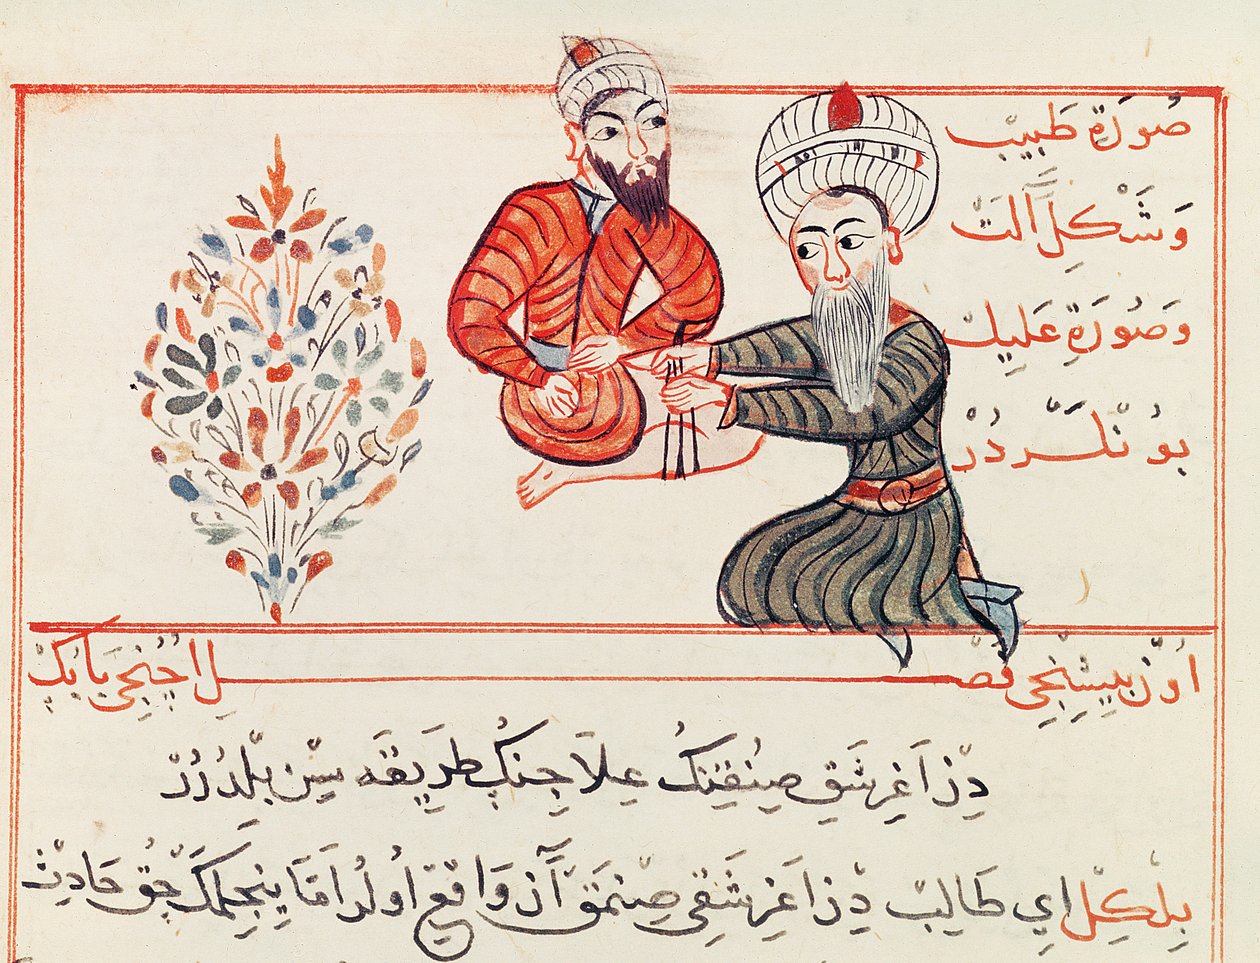 صُورَةِ طَبيبْ
وَشَكْلِ آلَتْ
وَصُورَةِ عَلِيلْ
بُونْلَرْدُرْ
اُوْن بِيشِنْجِي فَصْلِ اُچُنْجِي بَابُكْ
دِزْ اَغِرشَقِ صِنُقِنِكْ عِلاَجِنِكْ طَرِيقَه سِيْن بِلْدِرُرْ
بِلْكِلْ اي طَالِبْ دِزْ اَغِرشَقِي صِنْمَقْ آز وَاقِعْ اُولُر اَمَّا يِنْجِلْمَكْ چُقْ حَادِثْ